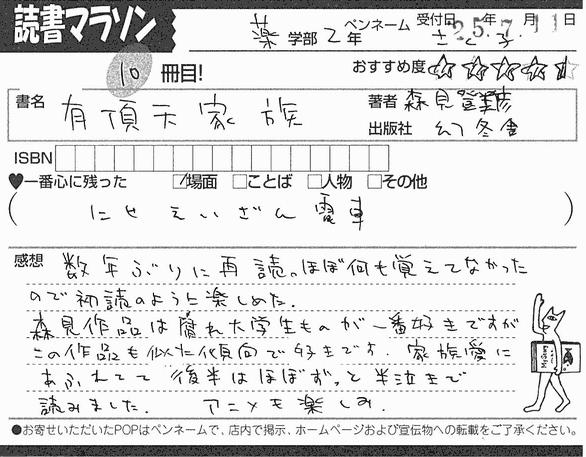 読書マラソン
薬 学部 2年 ペンネーム さく子 受付日 25年 7月 11日
10 冊目! おすすめ度 ☆☆☆☆☆
書名 有頂天家族 著者 森見登美彦
出版社 幻冬舎
ISBN
♥一番心に残った ☑場面 □ことば □人物 □その他
(にせえいざん電車)
感想 数年ぶりに再読。ほぼ何も覚えてなかった
ので初読のように楽しめた.
森見作品は腐れ大学生ものが一番好きですが
この作品も似た傾向で好きです. 家族愛に
あふれてて後半はほぼずっと半泣きで
読みました. アニメも楽しみ.
●お寄せいただいたPOPはペンネームで、店内で掲示、ホームページおよび宣伝物への転載をご了承ください。